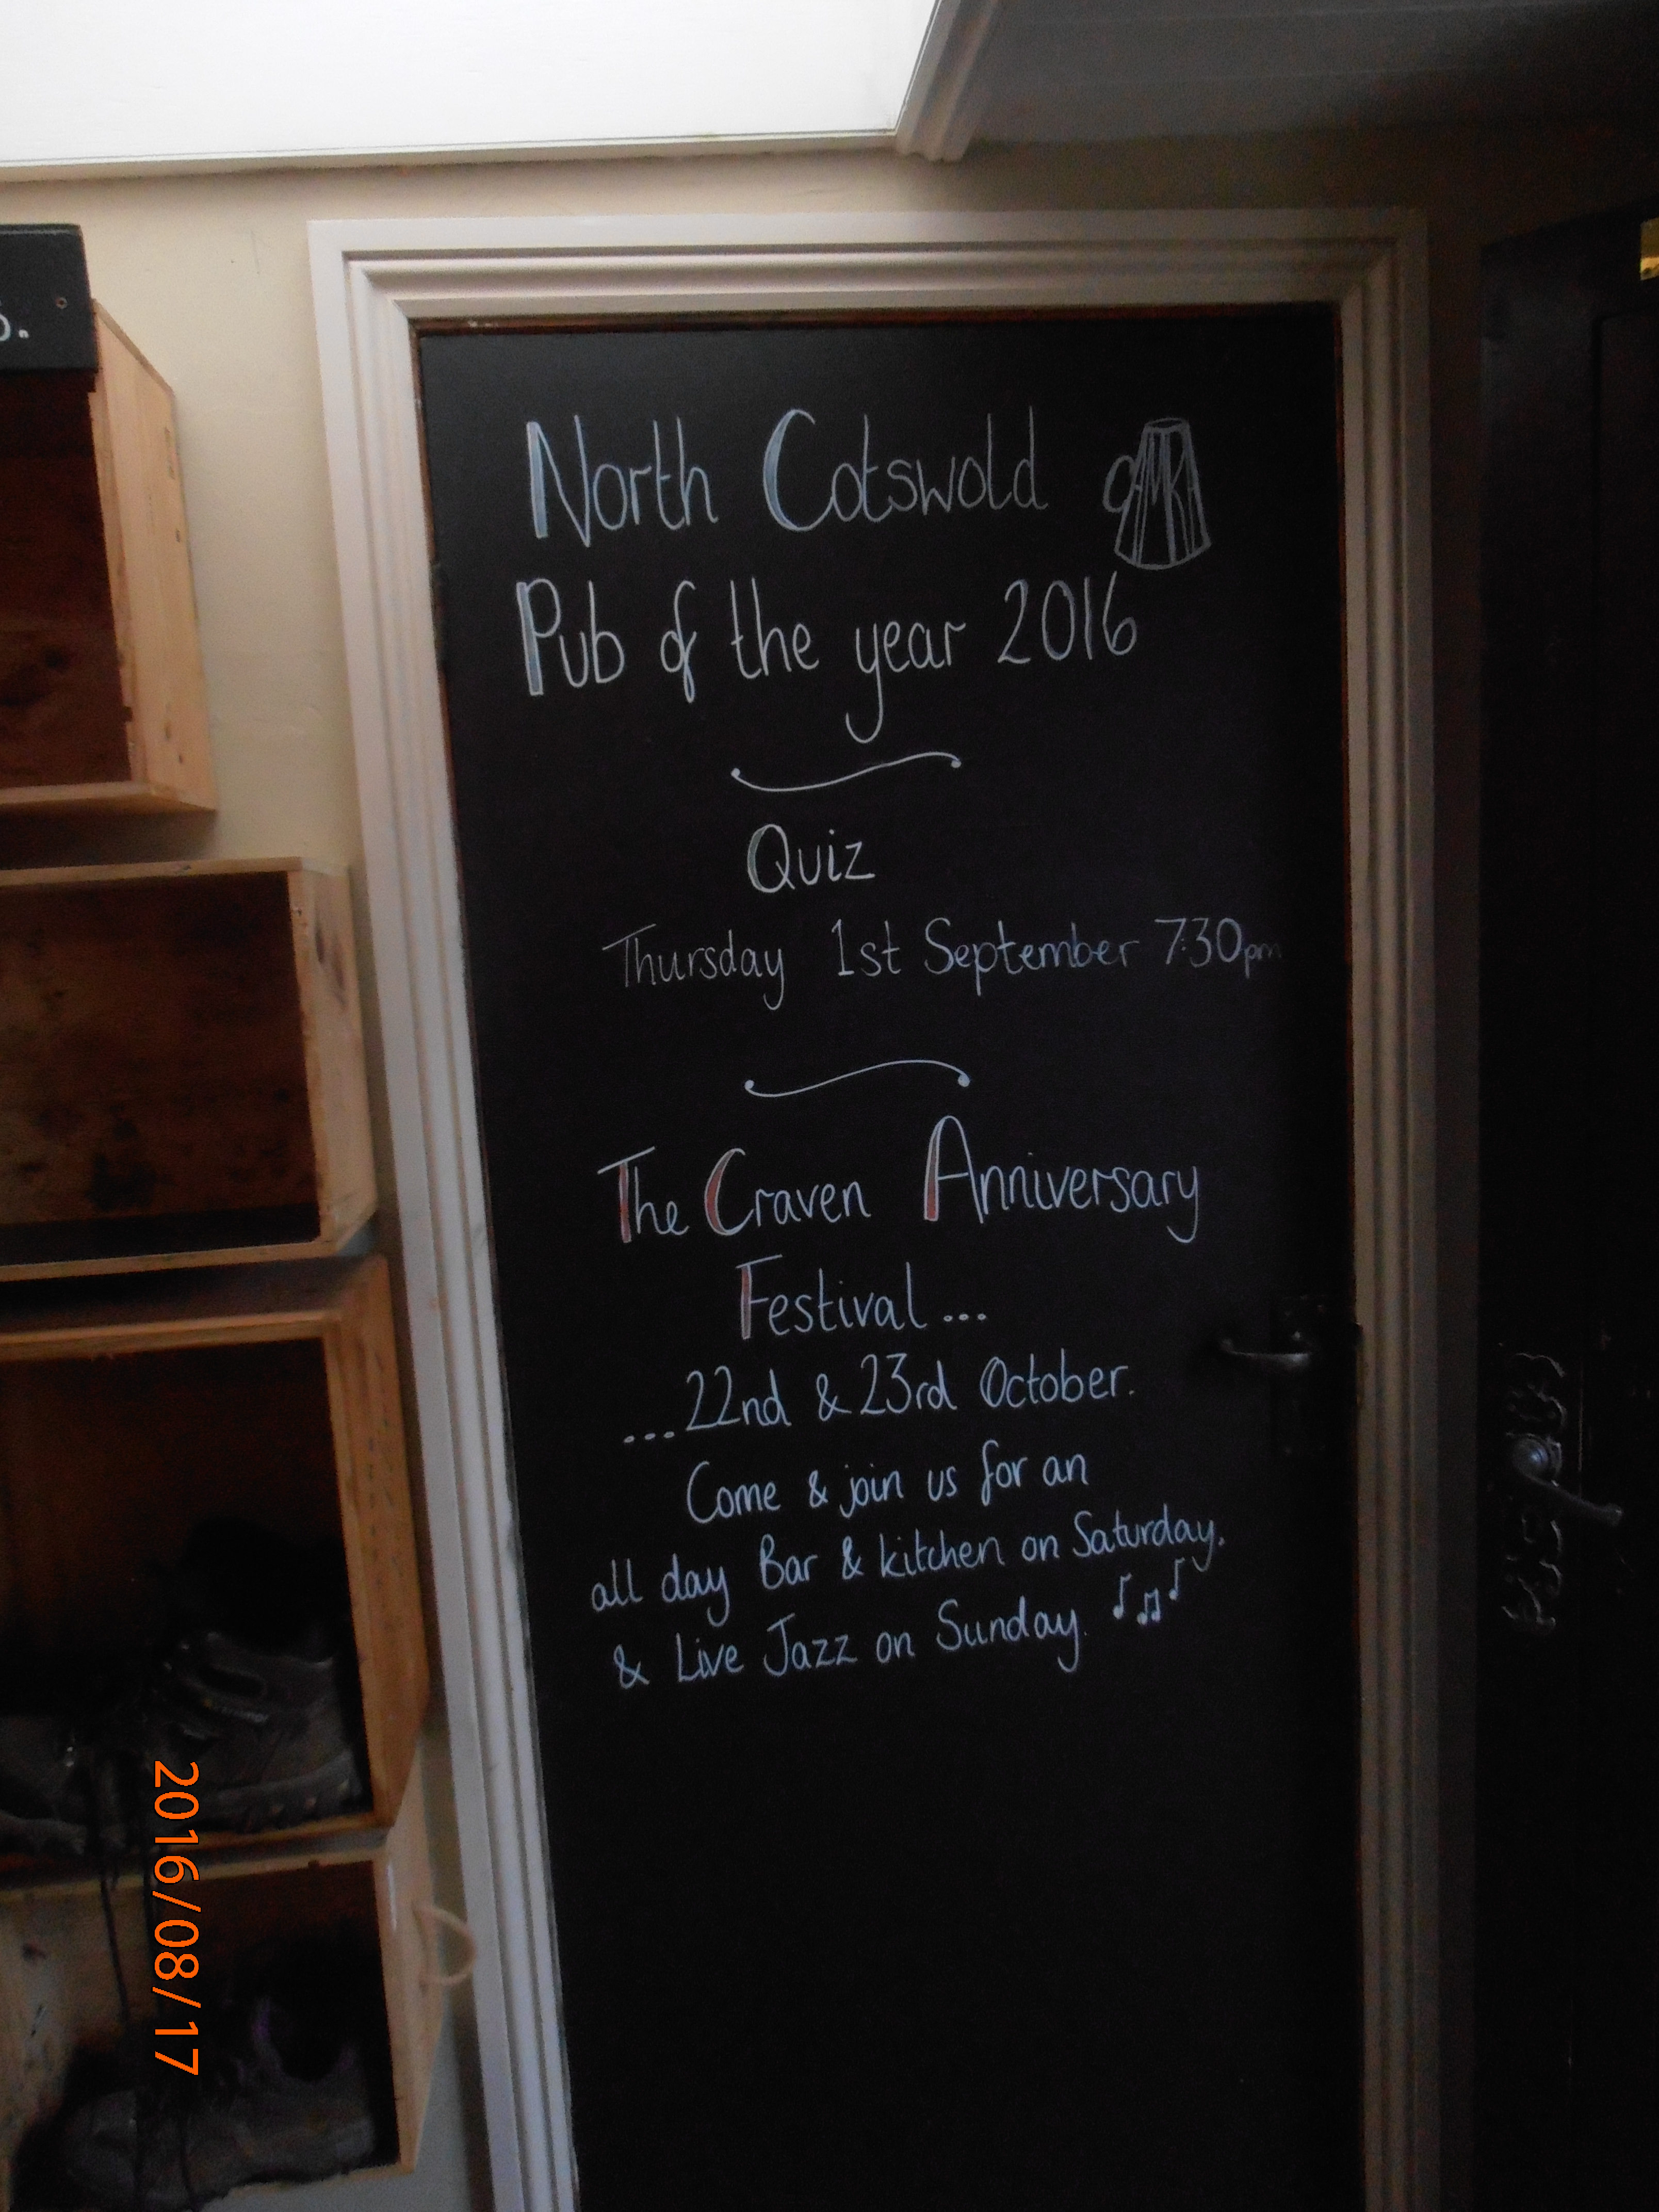 North Cotswold
CAMRA
Pub of the year 2016
Quiz
Thursday 1st September 7:30pm
The Craven Anniversary
Festival...
...22nd & 23rd October.
Come & join us for an
all day Bar & kitchen on Saturday.
& Live Jazz on Sunday.
2016/08/17